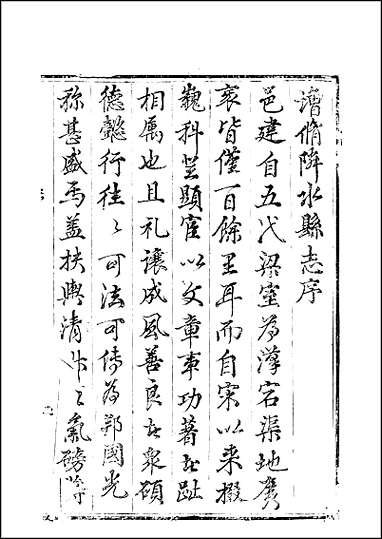 增脩隣水縣志序
邑建自五代梁室為漢宕渠地廣
袤皆僅百餘里耳而自宋以来掇
巍科登顯宦以文章事功著者趾
相属也且礼讓成風善良者衆碩
德懿行往〻可法可傳為邦國光
称甚盛焉盖扶輿清淑之氣磅礴